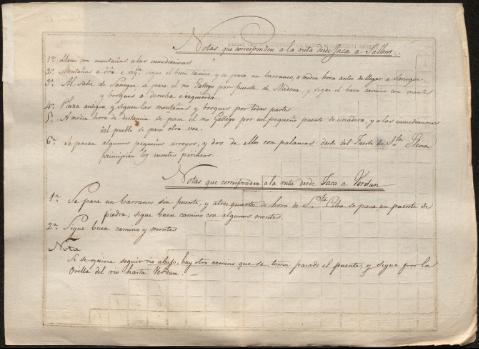 Notas que corresponden a la ruta desde Jaca a Sallent.
1ª Llano con montañas a las inmediaciones
2ª Montañas a drã e izqª sigue el buen camino, y se pasa un barranco a media hora antes de llegar a
3ª Al salir de se pasa el rio Gallego por puente de Madera, y sigue el buen camino con montes
y bosques a derecha e izquierda.
4ª Casa antigua, y siguen las montañas y bosques por todas partes
5ª A media hora de distancia se pasa el rio Gallego por un pequeño puente de madera, y a las inmediaciones
del pueblo se pasa otra vez.
6ª Se pasan algunos pequeños arroyos, y dos de ellos con palancas desde el Fuerte de Sta Elena
principian los montes
Notas que corresponden a la ruta desde Jaca a Verdun
1ª Se pasa un barranco sin puente, y a tres quartos de hora de Sta Cilia se pasa un puente de
piedra, sigue buen camino con algunos montes.
2ª Sigue buen camino y montes
Nota
Si se quiere seguir rio abajo, hay otro camino que se toma pasado el puente, y sigue por la
Orilla del rio hasta Verdun